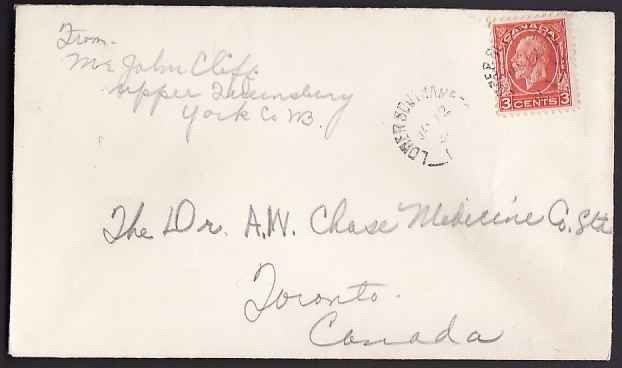 From.
Mr John Cliff
Upper Queensbury
York Co NB.
CANADA
3 CENTS 3
LOWER
The Dr. A.W. Chase Medicine Co. Ltd
Toronto.
Canada